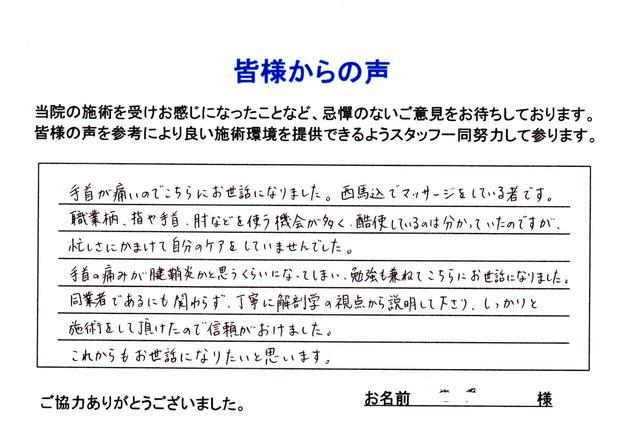 皆様からの声
当院の施術を受けお感じになったことなど、忌憚のないご意見をお待ちしております。
皆様の声を参考により良い施術環境を提供できるようスタッフ一同努力して参ります。
手首が痛いのでこちらにお世話になりました。西馬込でマッサージをしている者です。
職業柄、指や手首、肘などを使う機会が多く、酷使しているのは分かっていたのですが、
忙しさにかまけて自分のケアをしていませんでした。
手首の痛みが腱鞘炎かと思うくらいになってしまい、勉強も兼ねてこちらにお世話になりました。
同業者であるにも関わらず、丁寧に解剖学の視点から説明して下さり、しっかりと
施術をして頂けたので信頼がおけました。
これからもお世話になりたいと思います。
ご協力ありがとうございました。
お名前 様